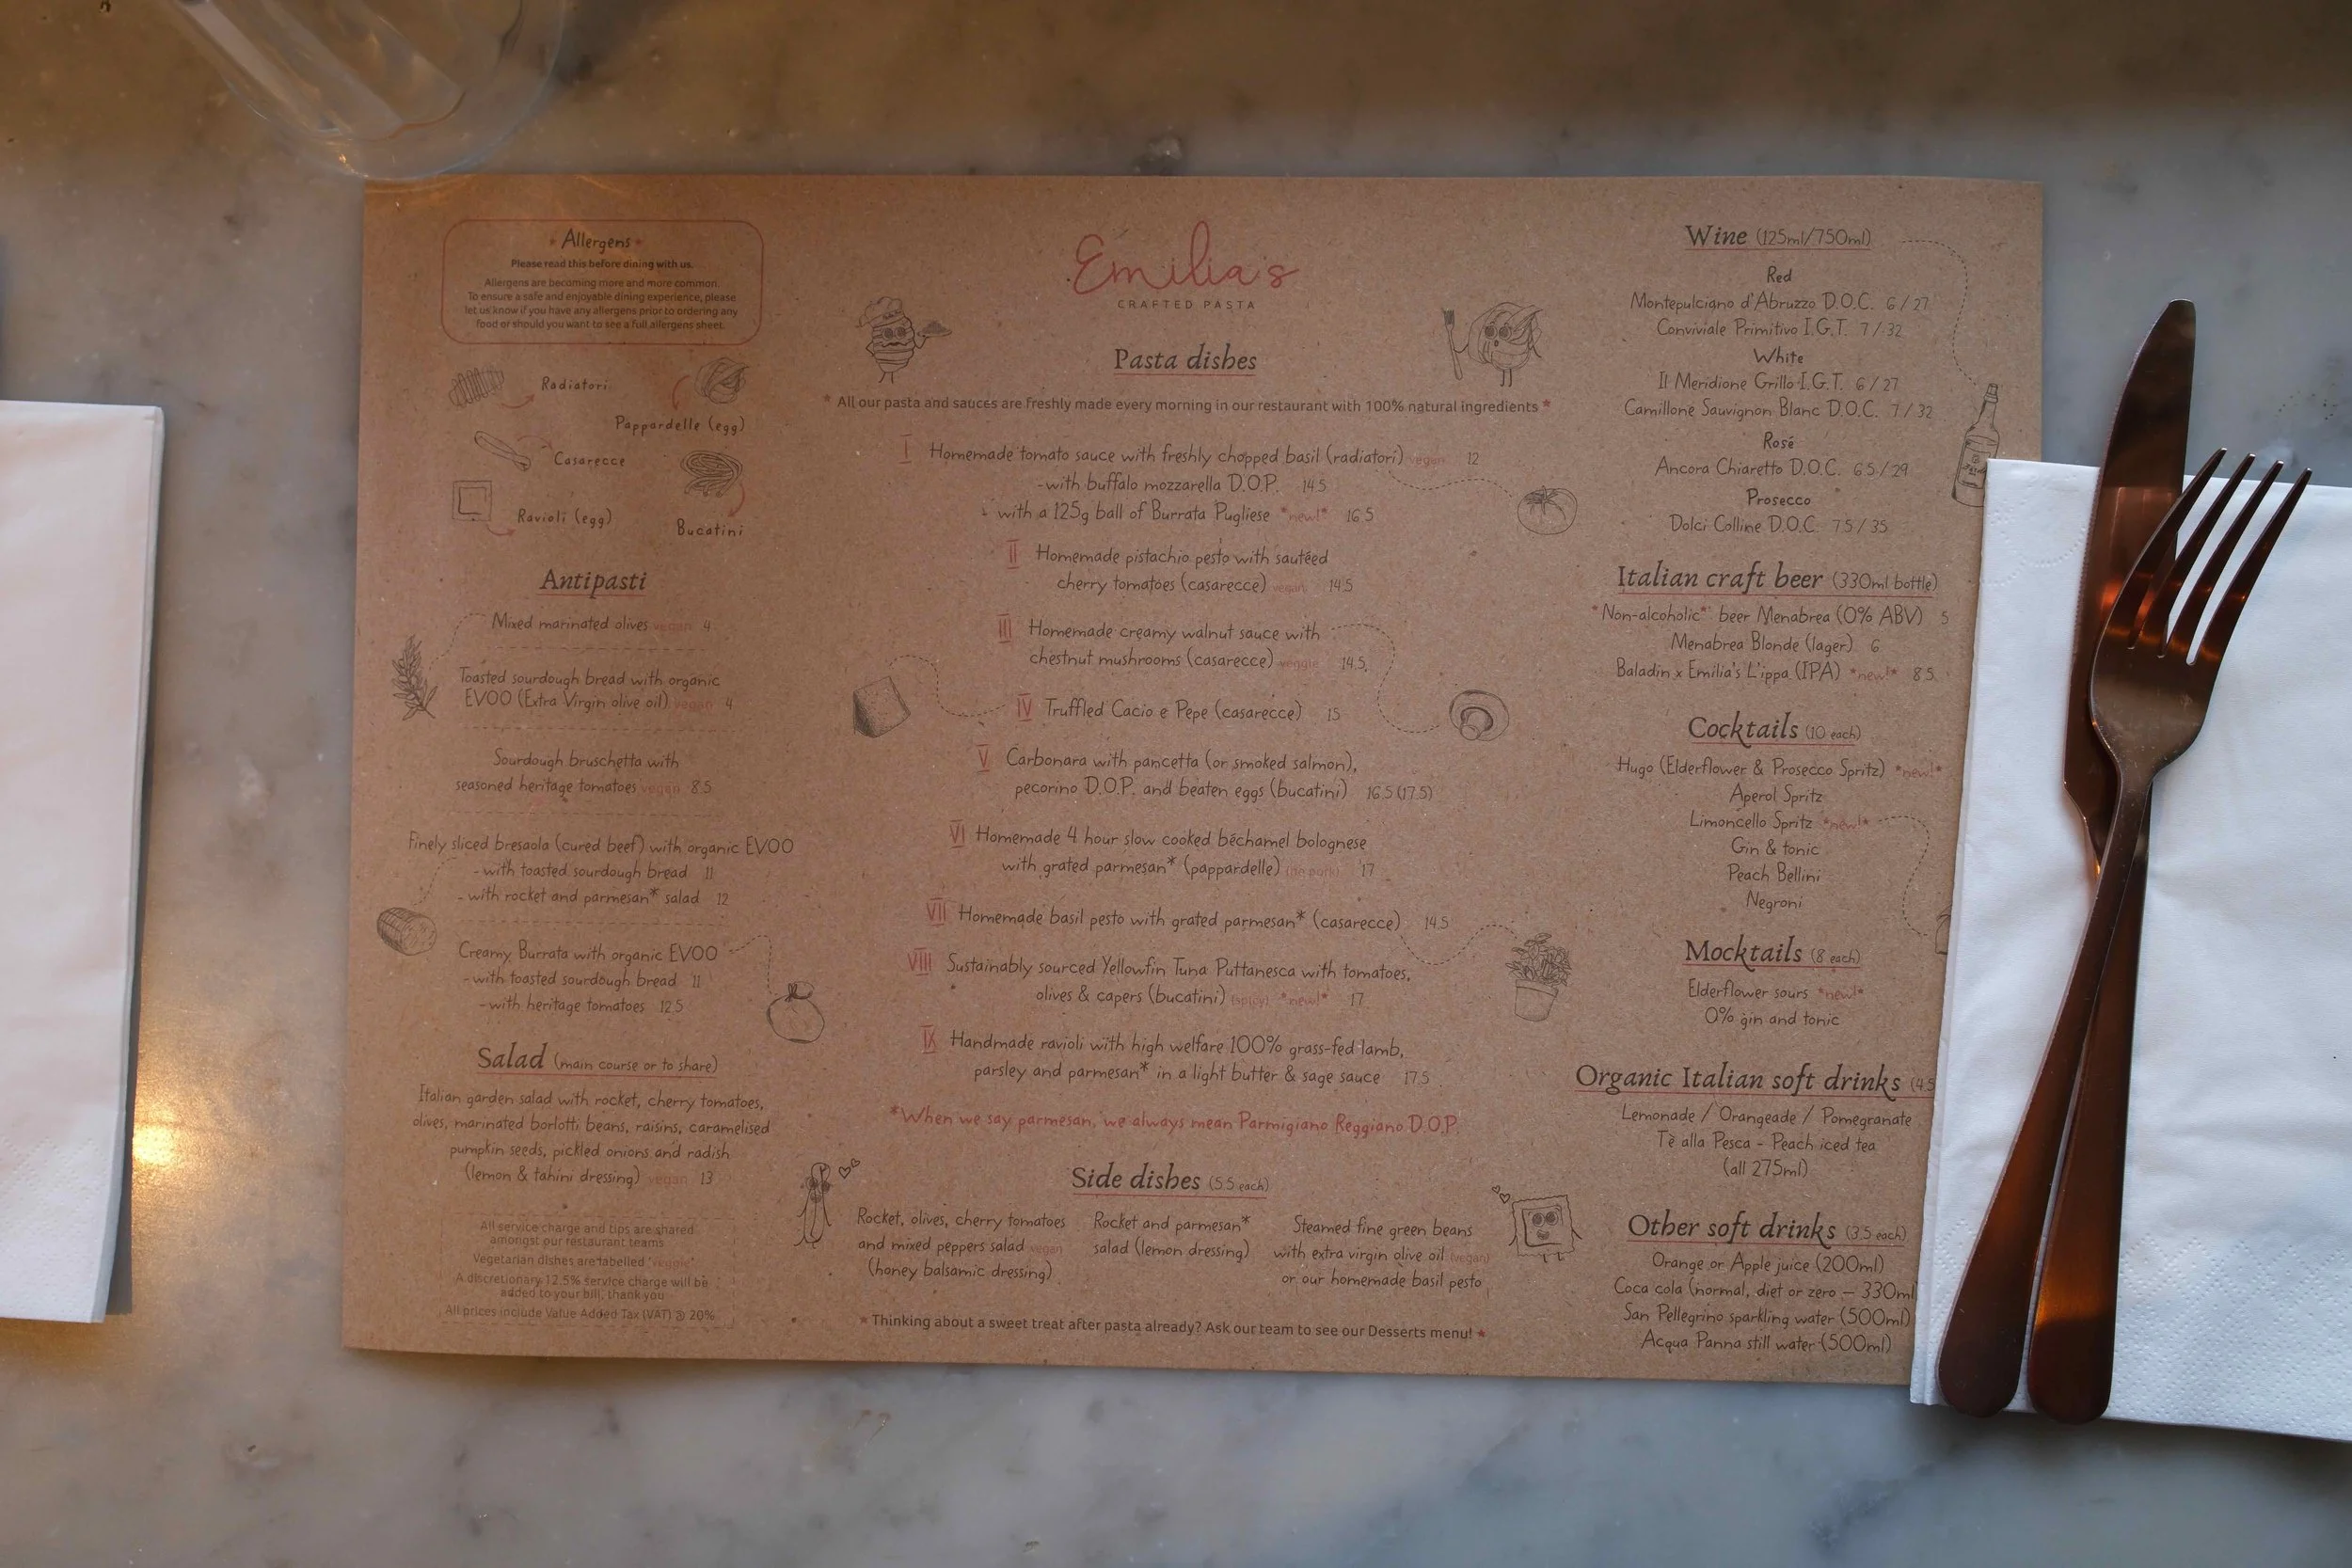 * Allergens *
Please read this before dining with us.
Allergens are becoming more and more common.
To ensure a safe and enjoyable dining experience, please
let us know if you have any allergens prior to ordering any
food or should you want to see a full allergens sheet.
Radiatori
Pappardelle (egg)
Casarecce
Ravioli (egg)
Bucatini
Antipasti
Mixed marinated olives vegan 4
Toasted sourdough bread with organic
EVOO (Extra Virgin olive oil) vegan 4
Sourdough bruschetta with
seasoned heritage tomatoes vegan 8.5
Finely sliced bresaola (cured beef) with organic EVOO
- with toasted sourdough bread 11
- with rocket and parmesan* salad 12
Creamy Burrata with organic EVOO
- with toasted sourdough bread 11
- with heritage tomatoes 12.5
Salad (main course or to share)
Italian garden salad with rocket, cherry tomatoes,
olives, marinated borlotti beans, raisins, caramelised
pumpkin seeds, pickled onions and radish
(lemon & tahini dressing) vegan 13
All service charge and tips are shared
amongst our restaurant teams
Vegetarian dishes are labelled "veggie"
A discretionary 12.5% service charge will be
added to your bill, thank you
All prices include Value Added Tax (VAT) @ 20%
Emilia's
CRAFTED PASTA
Pasta dishes
* All our pasta and sauces are freshly made every morning in our restaurant with 100% natural ingredients *
I Homemade tomato sauce with freshly chopped basil (radiatori) vegan 12
- with buffalo mozzarella D.O.P. 14.5
- with a 125g ball of Burrata Pugliese *new!* 16.5
II Homemade pistachio pesto with sautéed
cherry tomatoes (casarecce) vegan 14.5
III Homemade creamy walnut sauce with
chestnut mushrooms (casarecce) veggie 14.5
IV Truffled Cacio e Pepe (casarecce) 15
V Carbonara with pancetta (or smoked salmon),
pecorino D.O.P. and beaten eggs (bucatini) 16.5 (17.5)
VI Homemade 4 hour slow cooked béchamel bolognese
with grated parmesan* (pappardelle) (no pork) 17
VII Homemade basil pesto with grated parmesan* (casarecce) 14.5
VIII Sustainably sourced Yellowfin Tuna Puttanesca with tomatoes,
olives & capers (bucatini) (spicy) *new!* 17
IX Handmade ravioli with high welfare 100% grass-fed lamb,
parsley and parmesan* in a light butter & sage sauce 17.5
*When we say parmesan, we always mean Parmigiano Reggiano D.O.P.
Side dishes (5.5 each)
Rocket, olives, cherry tomatoes
and mixed peppers salad vegan
(honey balsamic dressing)
Rocket and parmesan*
salad (lemon dressing)
Steamed fine green beans
with extra virgin olive oil (vegan)
or our homemade basil pesto
* Thinking about a sweet treat after pasta already? Ask our team to see our Desserts menu! *
Wine (125ml/750ml)
Red
Montepulciano d'Abruzzo D.O.C. 6 / 27
Conviviale Primitivo I.G.T. 7 / 32
White
Il Meridione Grillo I.G.T. 6 / 27
Camillone Sauvignon Blanc D.O.C. 7 / 32
Rosé
Ancora Chiaretto D.O.C. 6.5 / 29
Prosecco
Dolci Colline D.O.C 7.5 / 35
Italian craft beer (330ml bottle)
*Non-alcoholic* beer Menabrea (0% ABV) 5
Menabrea Blonde (lager) 6
Baladin x Emilia's L'ippa (IPA) *new!* 8.5
Cocktails (10 each)
Hugo (Elderflower & Prosecco Spritz) *new!*
Aperol Spritz
Limoncello Spritz *new!*
Gin & tonic
Peach Bellini
Negroni
Mocktails (8 each)
Elderflower sours *new!*
0% gin and tonic
Organic Italian soft drinks (4.5
Lemonade / Orangeade / Pomegranate
Tè alla Pesca - Peach iced tea
(all 275ml)
Other soft drinks (3.5 each)
Orange or Apple juice (200ml)
Coca cola (normal, diet or zero – 330ml
San Pellegrino sparkling water (500ml)
Acqua Panna still water (500ml)